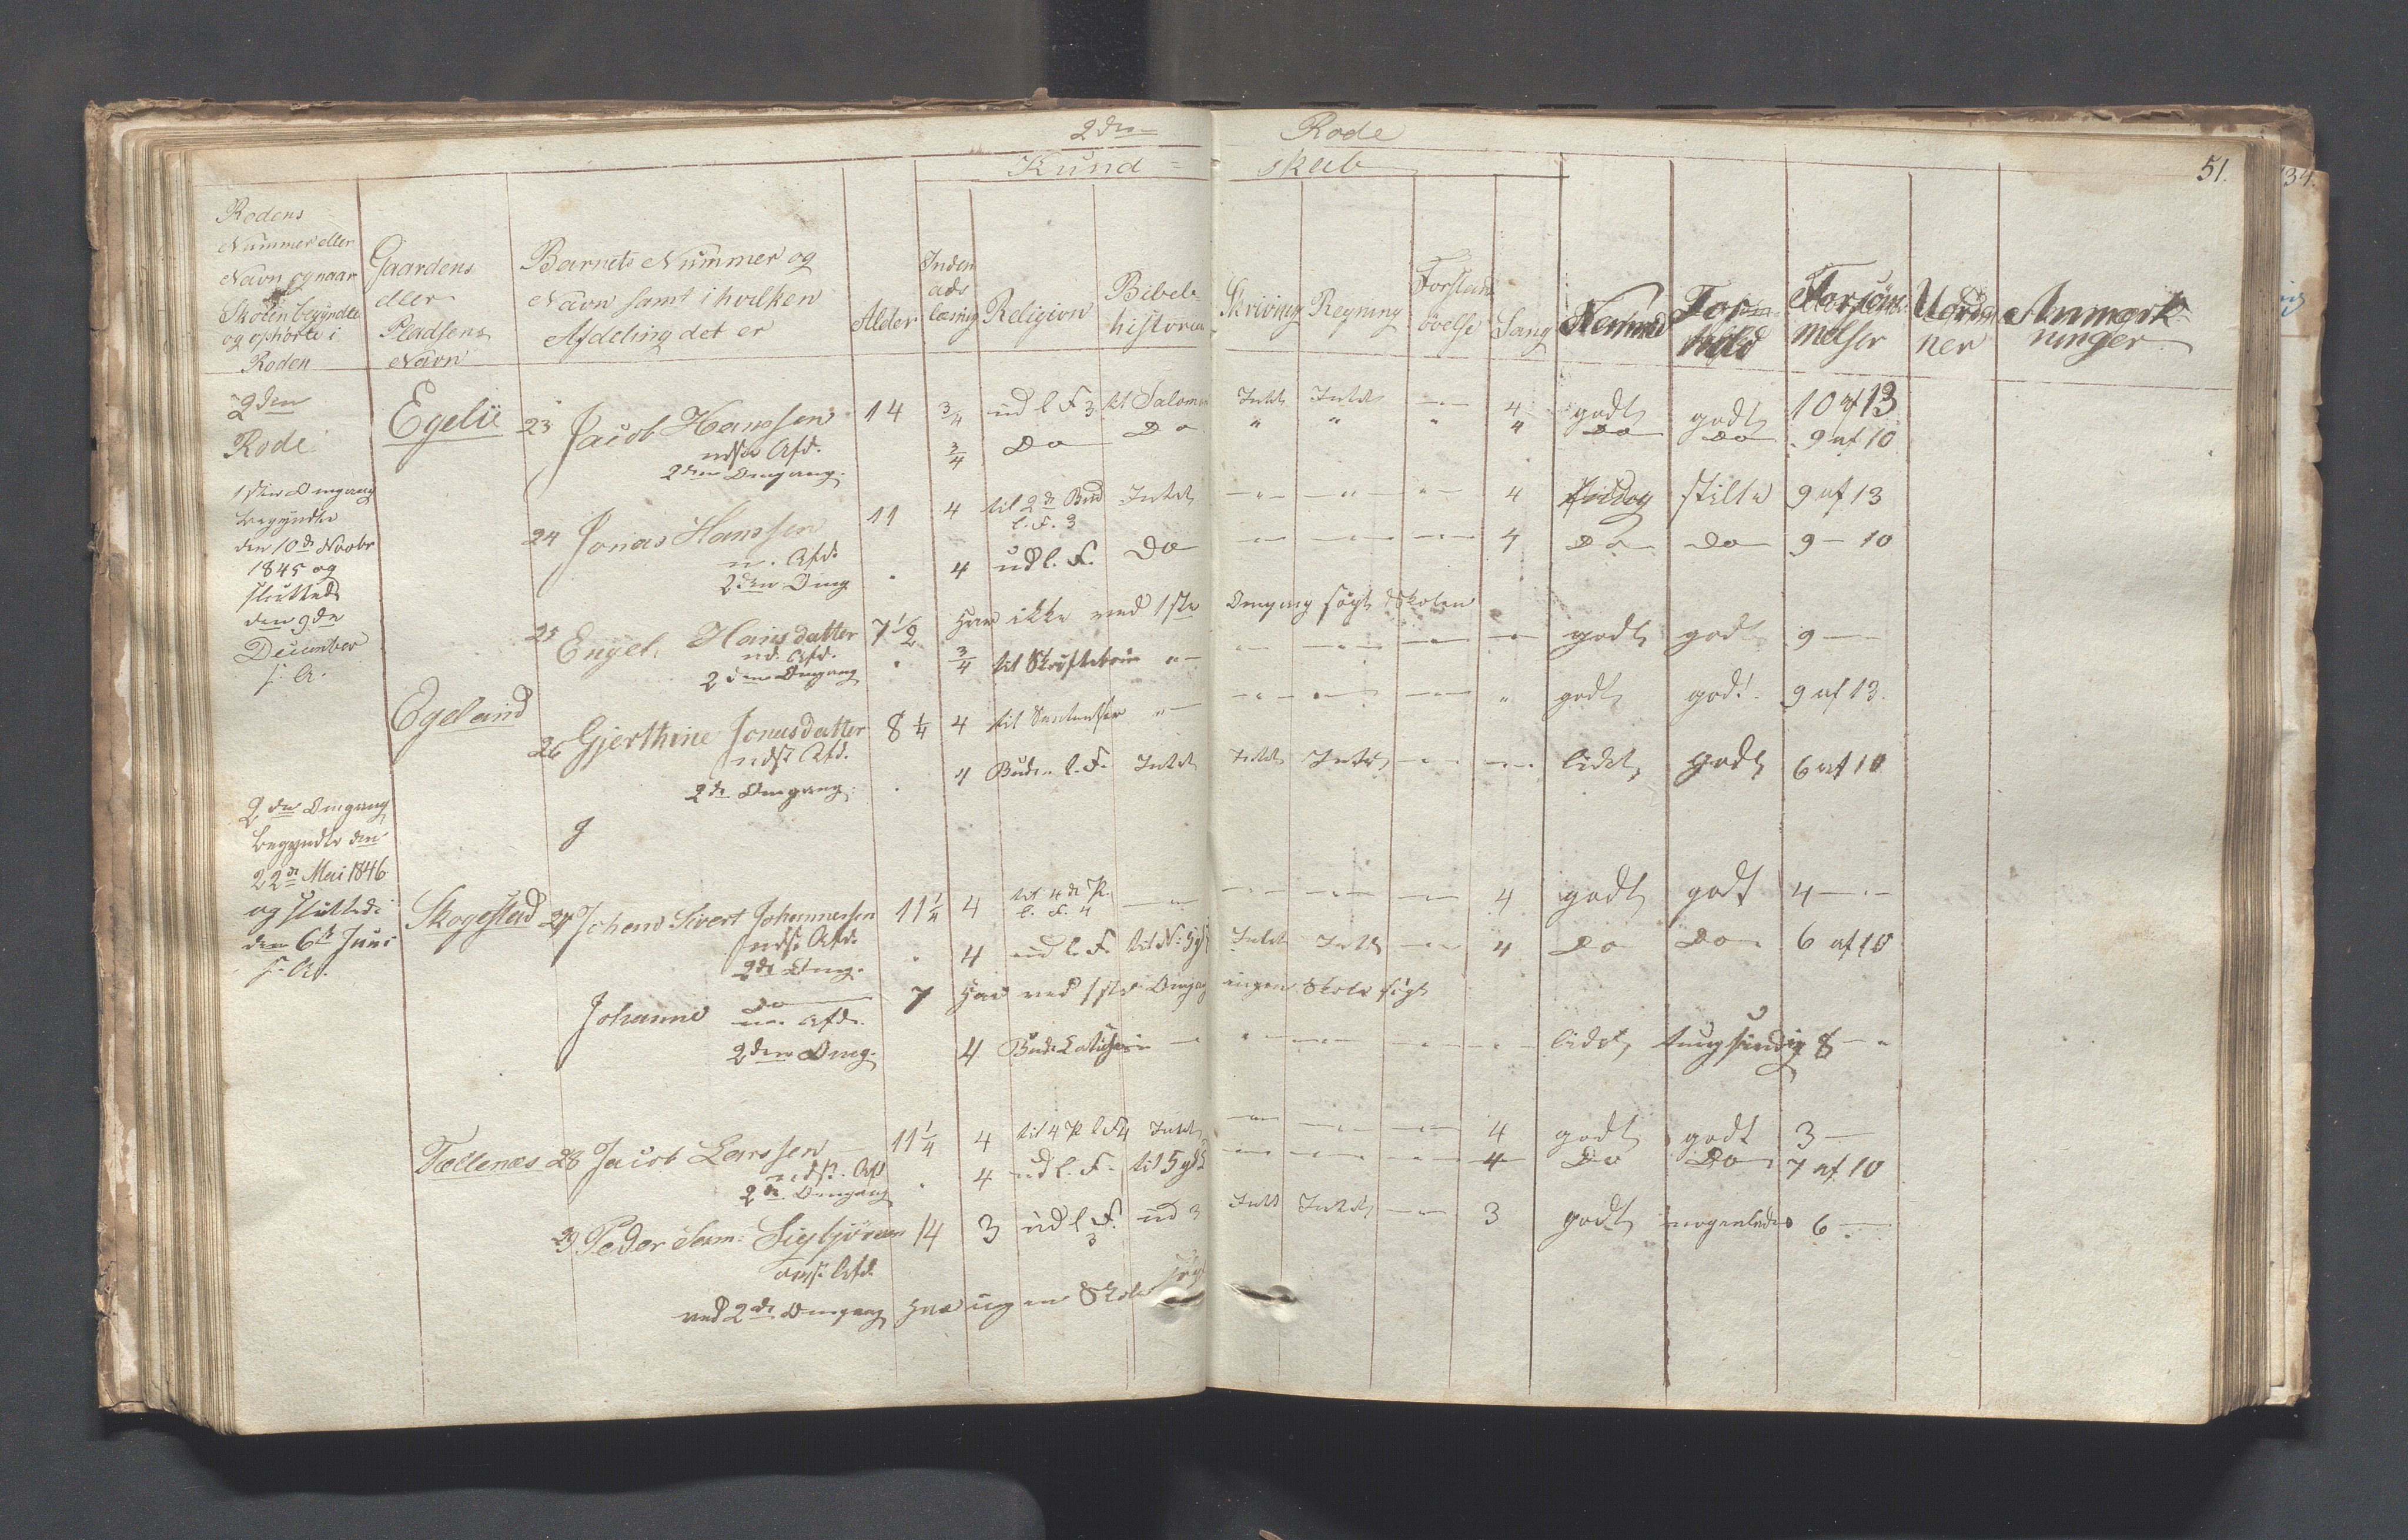 2den Rode
Kund= skab
51.
Rodens
Nummer eller
Navn og naar
Skolen begyndte
og ophørte i
Roden
Gaardens
eller
Pladsens
Navn
Barnets Nummer og
Navn samt i hvilken
Afdeling det er
Alder
Inden
ads
læsning
Religion
Bibel-
historie
Skrivning
Regning
Forstands
øvelse
Sang
Nemme
For-
hold
Forsøm-
melser
Uorde
ner
Anmærk-
ninger
2den
Rode
Egelie 23 Jacob Hanssen 14 3/4 ud l F 3 til Salomon Intet Intet -"- 4 godt godt 10 af 13
nedst Afd.
2den Omgang. 3/4 Do Do " " " 4 Do Do 9 af 10
1ste Omgang
begyndte
den 10de Novbr
1845 og
sluttede
den 9de
December
s. A.
24 Jonas Hanssen 11 4 til 2de Bud Intet -"- -"- -"- 4 stille 9 af 13
l. F. 3
n. Afd.
2den Omg " 4 ud l. F. Do -"- -"- -"- 4 Do Do 9 - 10
25 Engel Hansdatter 7 1/2 Har ikke ved 1ste Omgang søgt Skolen
nd. Afd.
2den Omgang " 3/4 til "- -"- -"- -"- -"- godt godt 9 -
Egeland
26 Gjerthine Jonasdatter 8 1/4 4 til "- -"- -"- -"- " godt godt. 9 af 13.
nedst Afd.
2de Omgang. " 4 Bud. l. F. Intet Intet Intet -"- -"- lidet godt 6 af 10
g
2den Omgang
begyndte den
22de Mai 1846
og sluttede
den 6te Juni
s. A.
Skogestad 27 Johan Sivert Johannessen 11 1/4 4 til 4de P. -"- -"- -"- -"- 4 godt godt 4 -"-
l. F. 4
nedst Afd.
2de Omg. " 4 ud l. F. Intet Intet -"- 4 Do Do 6 af 10
Johanne Do 7 Har ved 1ste Omgang ingen Skole søgt
n. Afd.
2den Omg. 4 - "- -"- -"- -"- lidet tungsindig 8 - "
Tællenæs 28 Jacob Larssen 11 1/4 4 til 4 P l F 4 Intet -"- -"- -"- 4 godt godt 3 -
nedst. Afd
2de Omgang " 4 ud l. F. -"- -"- -"- 4 Do Do 7 af 10
29 Peder Sam: Sigbjørnsen 14 3 ud l F. ud 3 Intet Intet -"- 3 godt nogenledes 6 -
3
Afd.
ved 2den Omgang har ingen Skole søgt